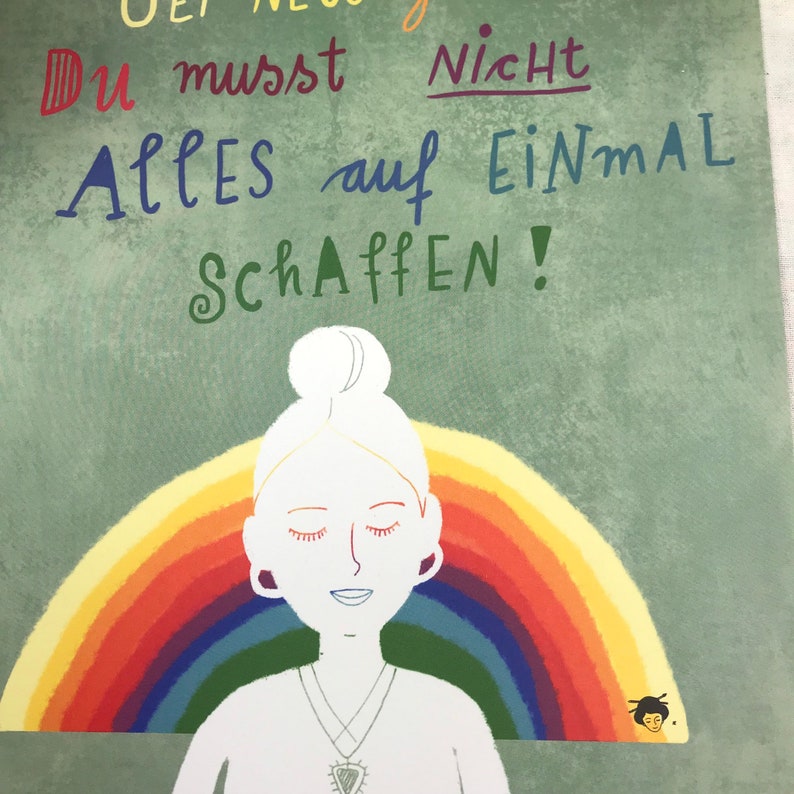 Du musst NicHt
AllES auf EiNmAL
SchAffEN!